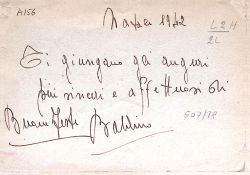 A156
Natale 1942
L2H
2L
Ti giungano gli auguri
più sinceri e affettuosi di
Buone Feste Babbino
507/78